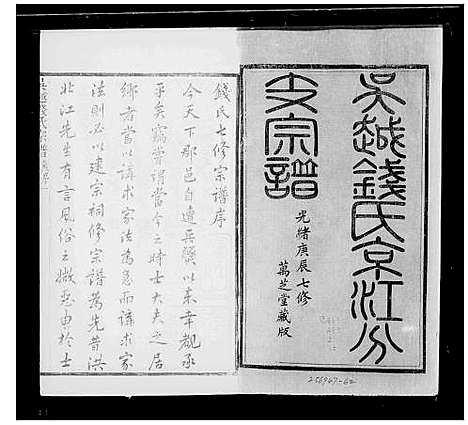 吳越錢氏京江分
支宗譜
光緒庚辰七修
萬芝堂藏版
256947-62
錢氏七修宗譜序
今天下郡邑自遭兵燹以來幸覩承
平矣竊嘗謂當今之時士大夫之居
鄉者當以講求家法為急而講求家
法則必以建宗祠修宗譜為先昔洪
北江先生有言風俗之媺惡由於士